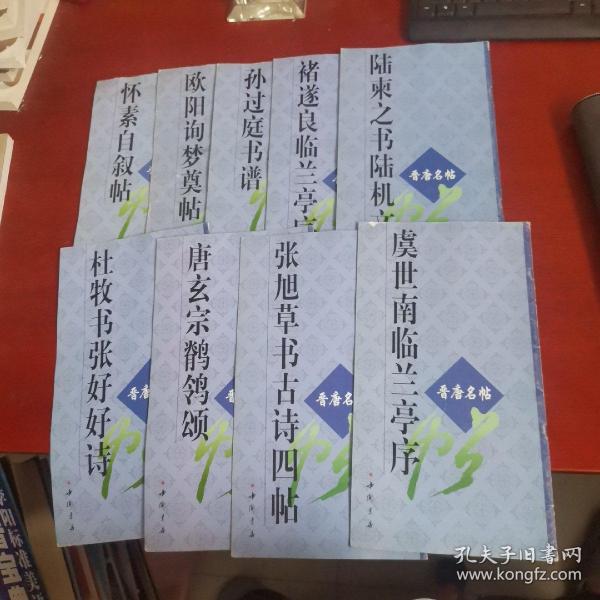 怀素自叙帖
欧阳询梦奠帖
孙过庭书谱
褚遂良临兰亭序
陆柬之书陆机文
晋唐名帖
帖
杜牧书张好好诗
中国书店
唐玄宗鹡鸰颂
中国书店
张旭草书古诗四帖
晋唐名
帖
中国书店
虞世南临兰亭序
晋唐名帖
帖
中国书店
孔夫子旧书网
www.kongfz.com